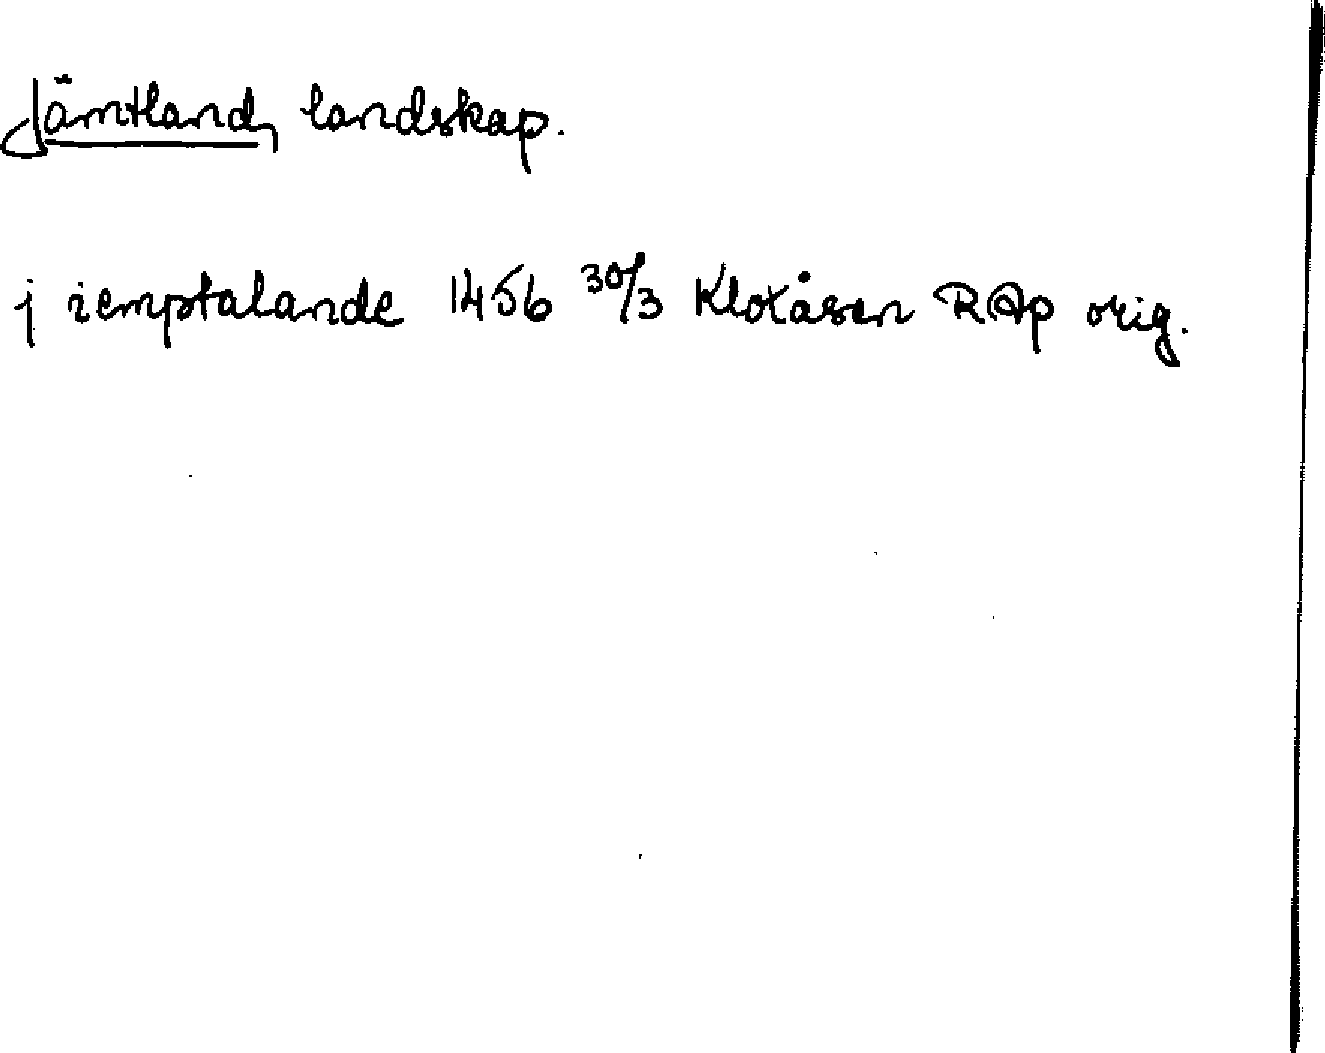 Jämtland, landskap.
j iemptalande 1456 30/3 Klokåsen RAp orig.